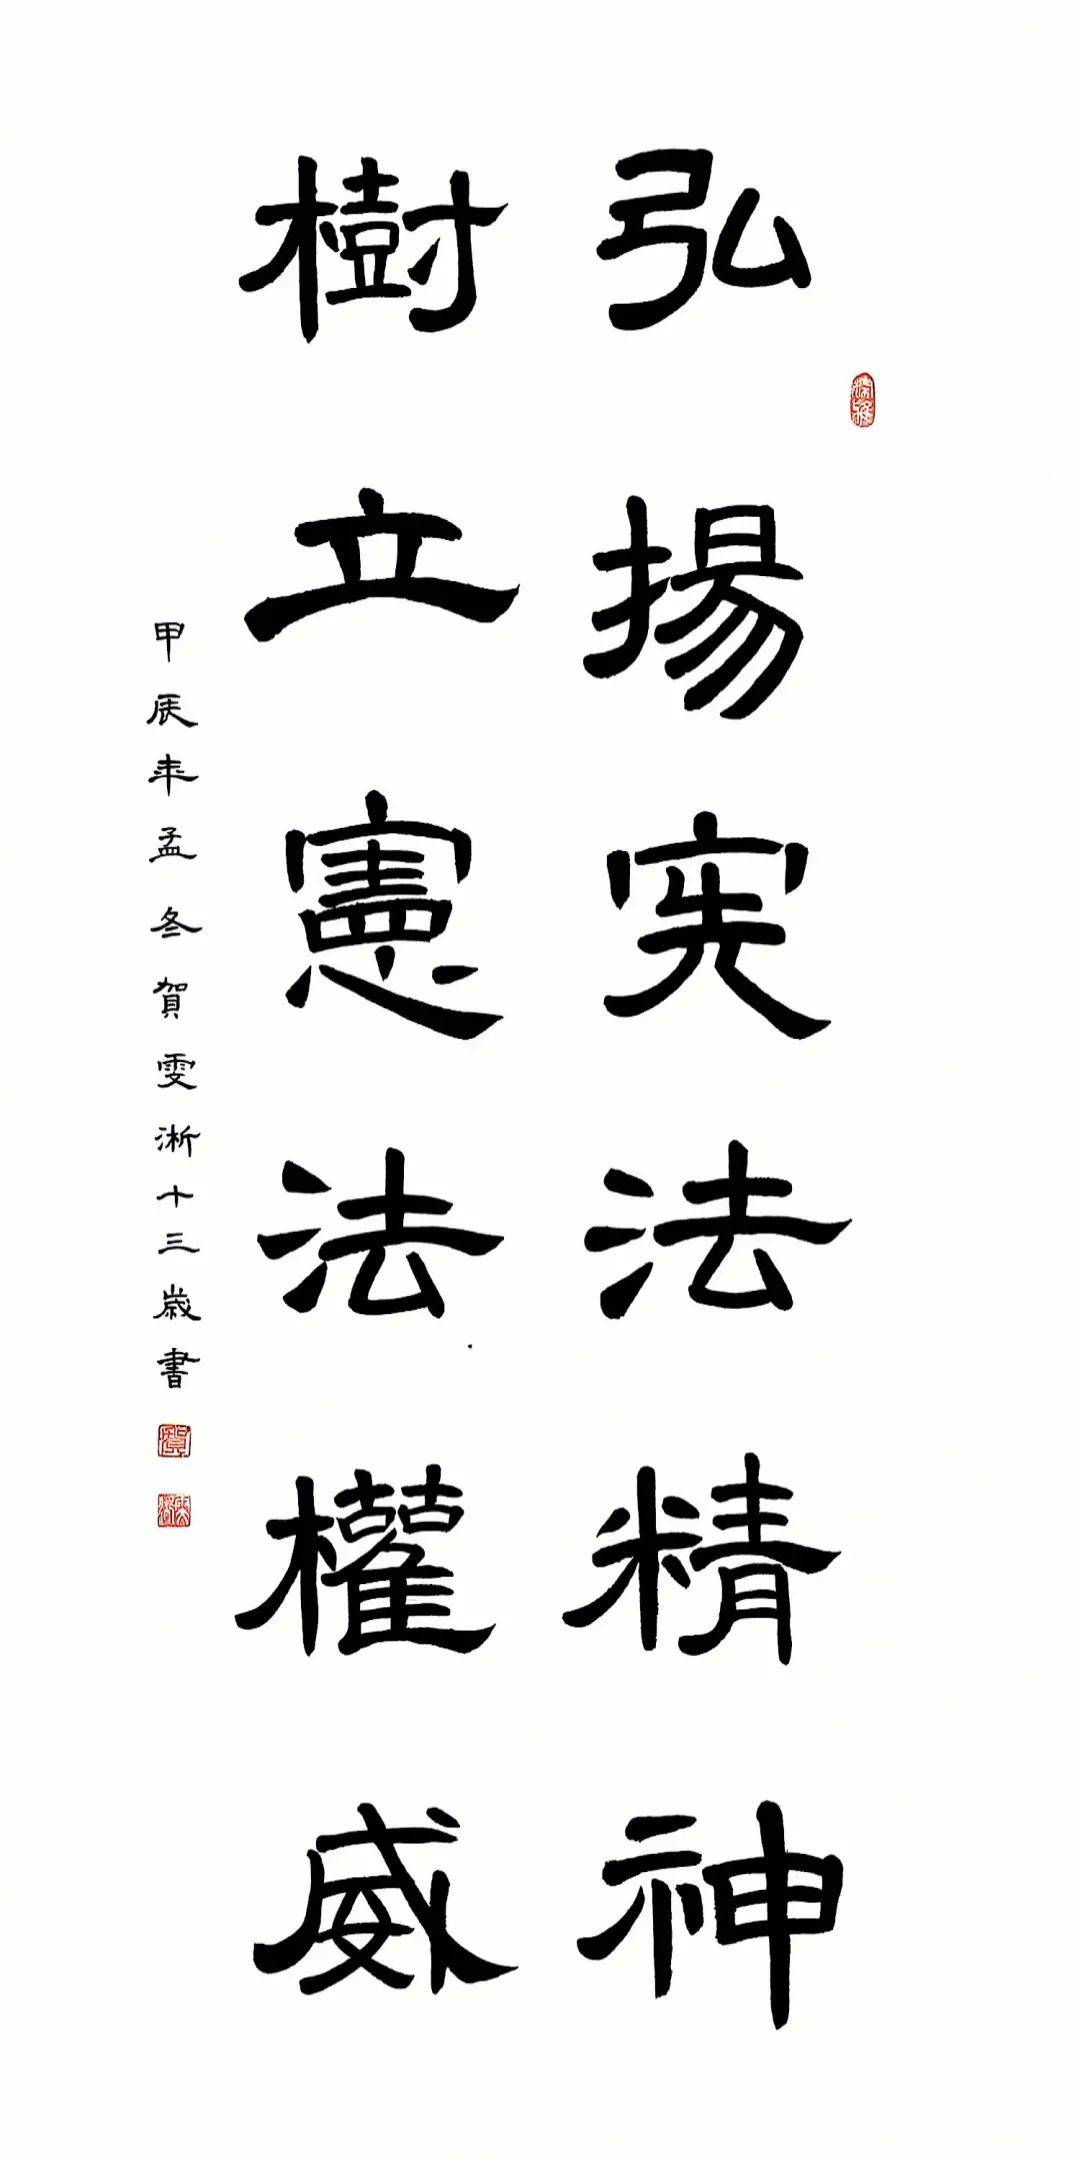 弘揚宪法精神
樹立憲法權威
甲辰年孟冬賀雯淅十三歲書